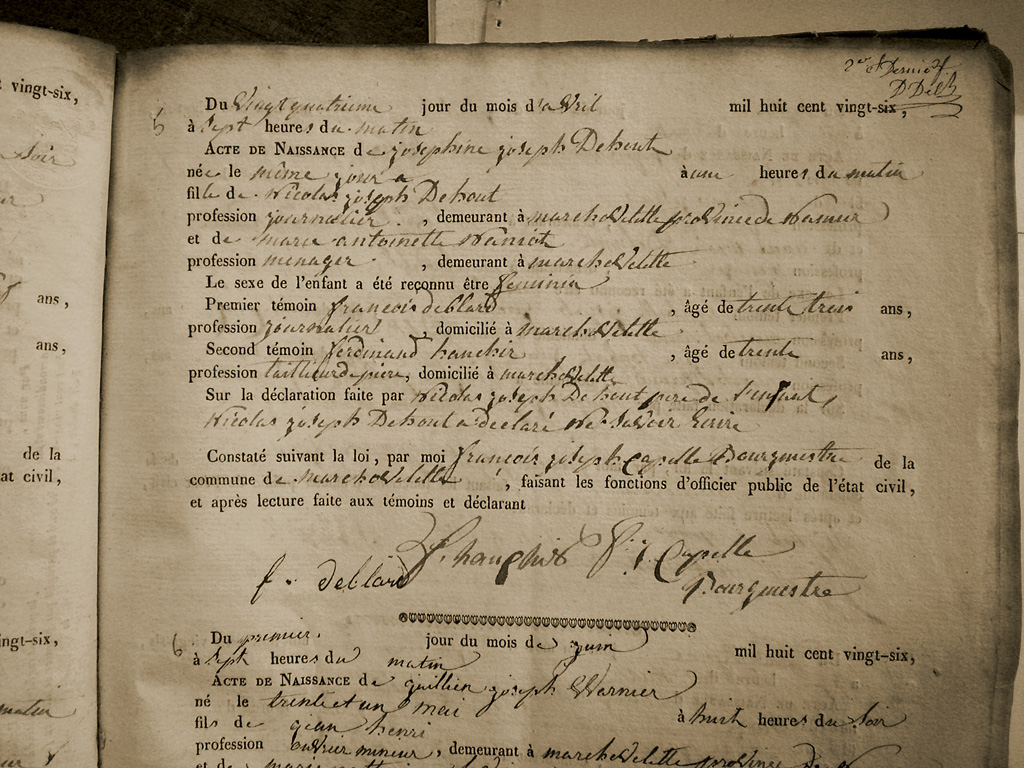 t vingt-six,
soir
ans,
ans,
de la
at civil,
ingt-six,
matin
2er et Dernier f.
5
Du Vingt quatrieme jour du mois d'aVril mil huit cent vingt-six,
à sept heures du matin
ACTE DE NAISSANCE de josephine joseph Dehout
née le même jour a à une heures du matin
fille de Nicolas joseph Dehout
profession journalier , demeurant à marcheVelette proVince de Namur
et de marie antoinette Hansot
profession menager , demeurant à marcheVelette
Le sexe de l'enfant a été reçonnu être feminin
Premier témoin francois deblard , âgé de trente trois ans,
profession journalier , domicilié à marcheVelette
Second témoin ferdinand hanchir , âgé de trente ans,
profession tailleur de piere, domicilié à marcheVelette
Sur la déclaration faite par Nicolas joseph Dehout pere de l'enfant,
Nicolas joseph Dehout a declaré Ne saVoir Ecrire
Constaté suivant la loi, par moi francois joseph Capelle Bourgmestre de la
commune de marcheVelette , faisant les fonctions d'officier public de l'état civil,
et après lecture faite aux témoins et déclarant
f. deblard
Capelle
Bourgmestre
6
Du premier. jour du mois de juin mil huit cent vingt-six,
à sept heures du matin
ACTE DE NAISSANCE de guillien joseph Warnier
né le trente et un mai à huit heures du soir
fils de jean henri
profession ouVrier mineur, demeurant à marcheVelette proVince de N
et de marie